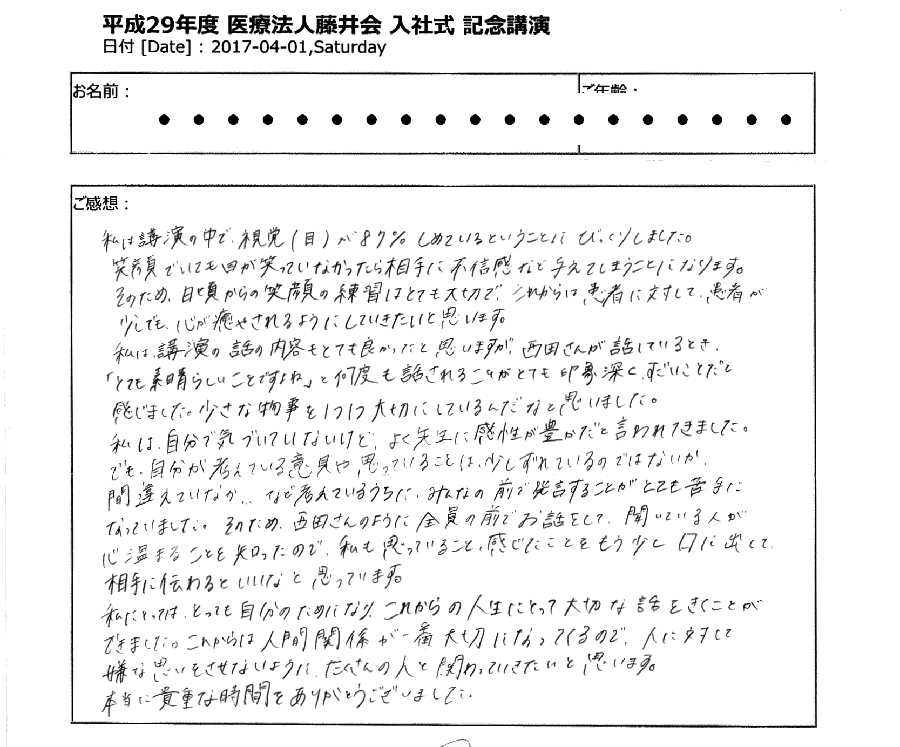 平成29年度 医療法人藤井会 入社式 記念講演
日付 [Date] : 2017-04-01,Saturday
お名前：
ご年齢：
ご感想：
私は講演の中で、視覚(目)が87%しめているということにびっくりしました。
笑顔でいても目が笑っていなかったら相手に不信感など与えてしまうことになります。
そのため、日頃からの笑顔の練習はとても大切で、これからは患者に対して、患者が
少しでも、心が癒やされるようにしていきたいと思います。
私は、講演の話の内容もとても良かったと思いますが、西田さんが話しているとき、
「とても素晴らしいことですよね」と何度も話されることがとても印象深く、すごいことだと
感じました。少さな物事を1つ1つ大切にしているんだなと思いました。
私は、自分で気づいていないけど、よく先生に感性が豊かだと言われてきました。
でも、自分が考えている意見や思っていることは、少しずれているのではないか、
間違えていないか、、など考えているうちに、みんなの前で発言することがとても苦手に
なっていました。そのため、西田さんのように全員の前でお話をして、聞いている人が
心温まることを知ったので、私も思っていること、感じたことをもう少し口に出して、
相手に伝わるといいなと思っています。
私にとっては、とっても自分のためになり、これからの人生にとって大切な話をきくことが
できました。これからは人間関係が一番大切になってくるので、人に対して
嫌な思いをさせないように、たくさんの人と関わっていきたいと思います。
本当に貴重な時間をありがとうございました。